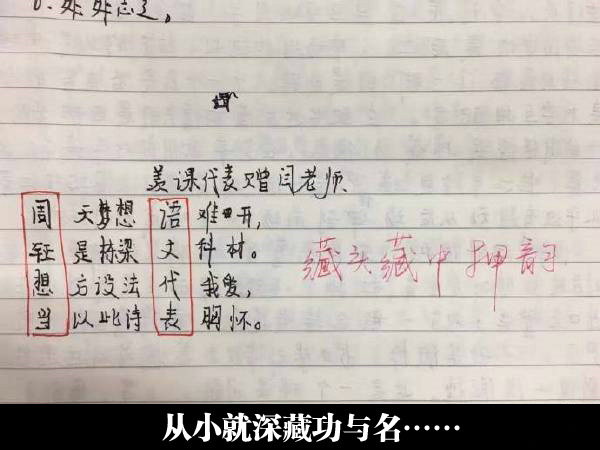 美课代表赠闫老师.
周天梦想语难开,
钰是栋梁文科材。
想方设法代我爱,
当以此诗表胸怀。
藏头藏中押韵
从小就深藏功与名……